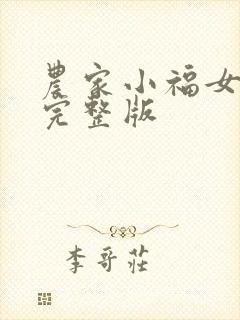 農家小福女
完整版
李哥莊